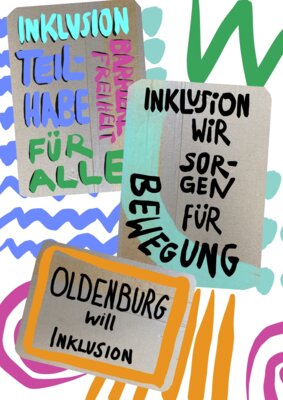 INKLUSION
TEIL-
HABE
BARRIERE
FREIHEIT
FÜR
ALLE
INKLUSION
WIR
SOR-
GEN
FÜR
BEWEGUNG
OLDENBURG
Will
INKLUSION